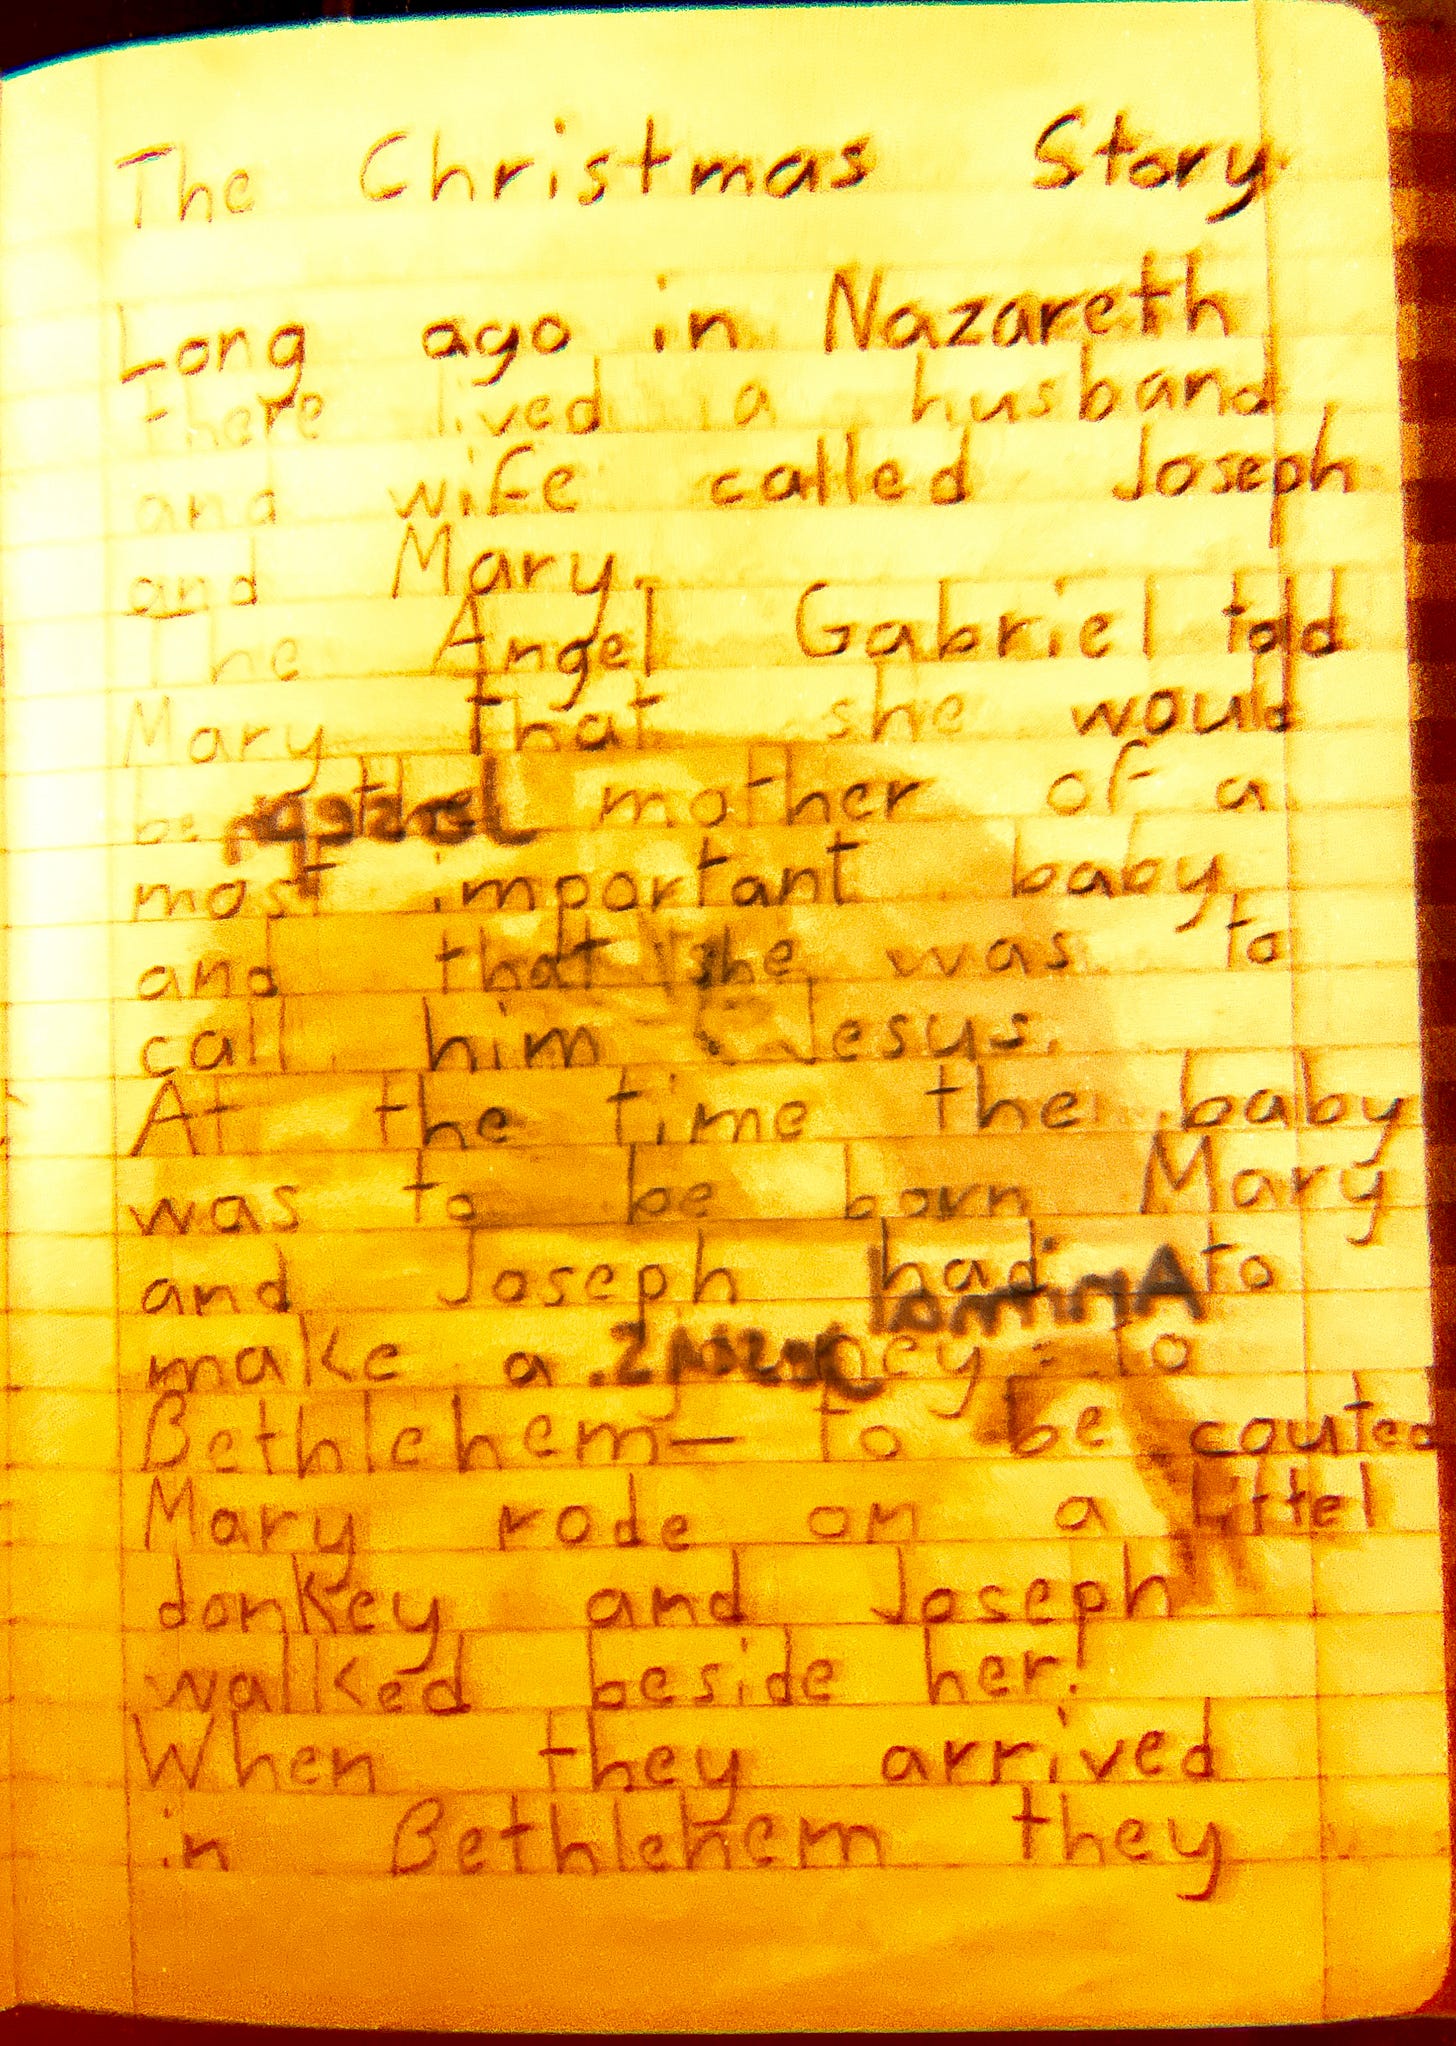 The Christmas Story
Long ago in Nazareth
there lived a husband
and wife called Joseph
and Mary.
The Angel Gabriel told
Mary that she would
be mother of a
most important baby
and that she was to
call him Jesus.
At the time the baby
was to be born Mary
and Joseph had to
make a to
Bethlehem— to be couted
Mary rode on a littel
donkey and Joseph
walked beside her!
When they arrived
in Bethlehem they